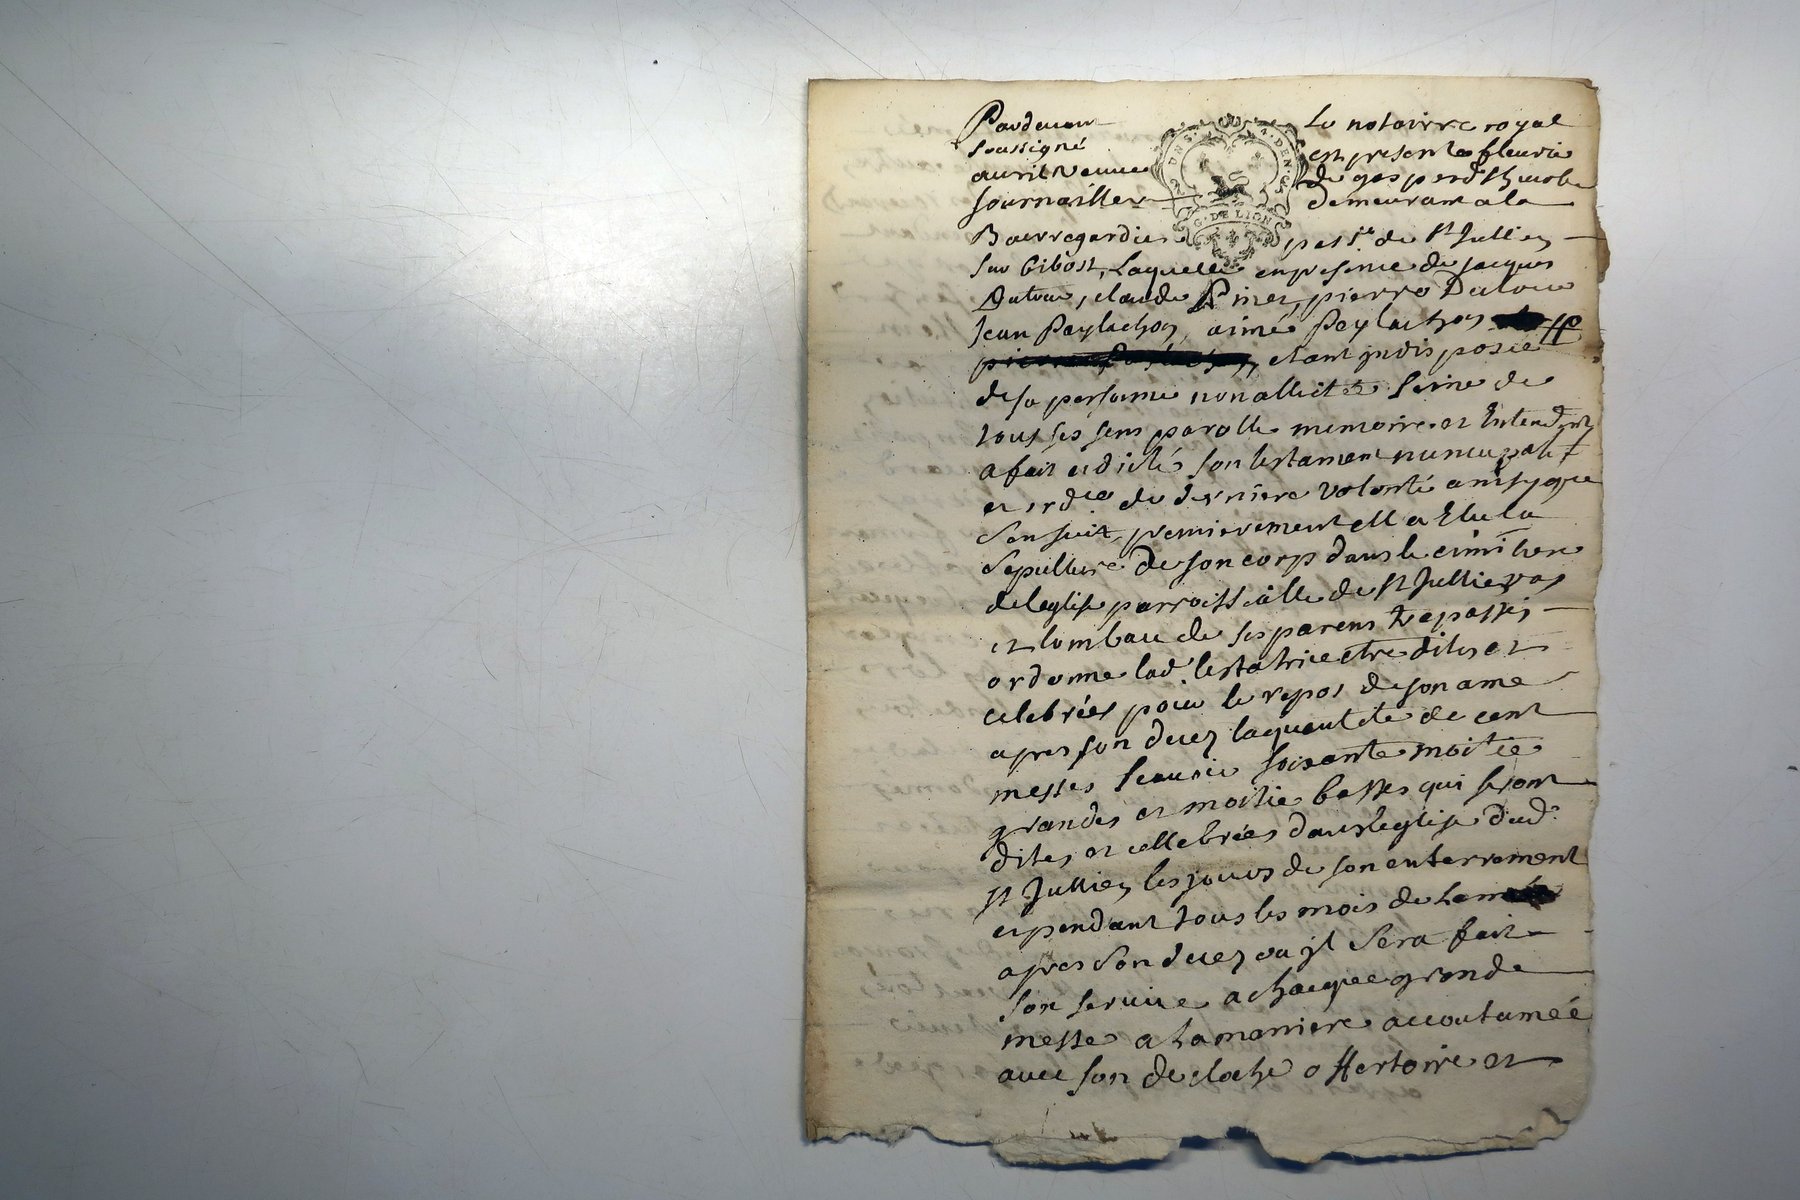 Pardevant le notaire royal
soussigné est presente fleurie
auril veuve de gasperd
journallier demeurant a la
Bauregardie par.se de St Jullien
sur bibost, Laquelle en presence de jacques
Dutour, claude Pinet, pierre Dutour
Jean Peylachon, aimé Peylachon
etant jndisposée
de sa personne non allictée saine de
tous ses sens parolle memoire et Entendemt
a fait et dicté son testament nuncupatif
et ord.ce de derniere volonté ainsy que
sensuit, premierement ell a Elu la
sepulture de son corp dans le cimitiere
de leglise parroissialle de St Jullien
et tombau de ses parens trepassés
ordonne lad.e testatrice etre dites et
celebrées pour le repos de son ame
apres son decez la quantité de cent
messes scauoir soixante moitié
grandes et moitié basses qui seront
dites et cellebrées dans leglise dud.
St Jullien les jours de son enterrement
et pendant tous les mois de
apres son decez ou jl sera fait
son seruice a chacque grande
messe a la maniere accoutumée
auec son de cloche offertoire et
G. DE LION